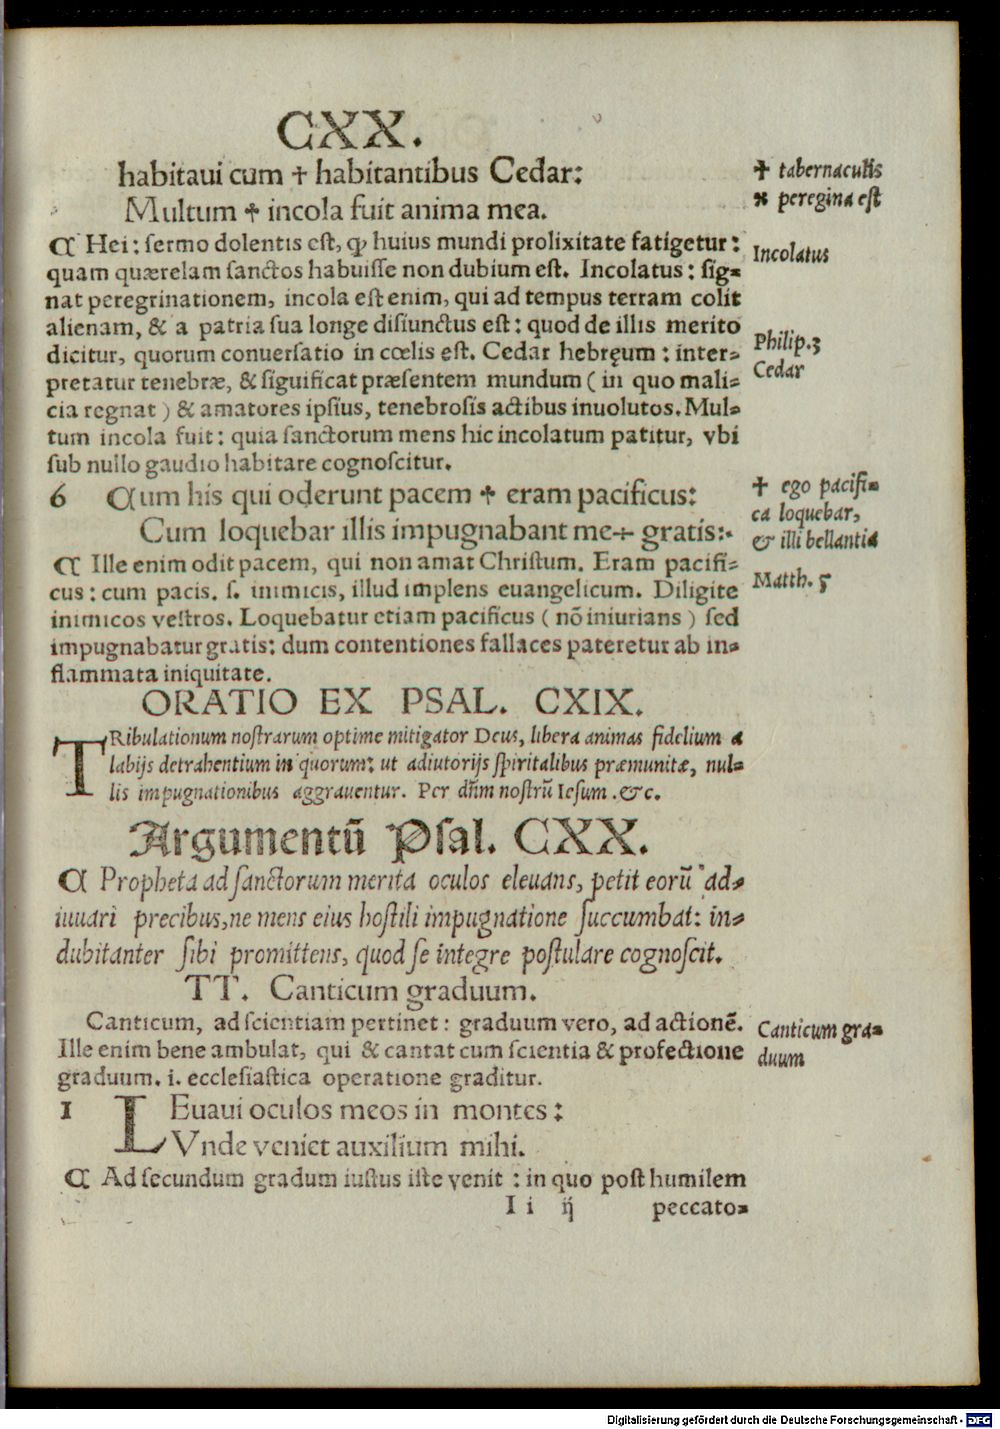 CXX.
habitaui cum ✝ habitantibus Cedar:
Multum ✝ incola fuit anima mea.
✝ tabernaculis
⁕ peregina est
¶ Hei: sermo dolentis est, ꝙ huius mundi prolixitate fatigetur:
quam quærelam sanctos habuisse non dubium est. Incolatus: sig-
nat peregrinationem, incola est enim, qui ad tempus terram colit
alienam, & a patria sua longe disiunctus est: quod de illis merito
dicitur, quorum conuersatio in cœlis est. Cedar hebręum: inter-
pretatur tenebræ, & siguificat præsentem mundum ( in quo mali-
cia regnat ) & amatores ipsius, tenebrosis actibus inuolutos. Mul-
tum incola fuit: quia sanctorum mens hic incolatum patitur, vbi
sub nullo gaudio habitare cognoscitur.
Incolatus
Philip.3
Cedar
6 Cum his qui oderunt pacem ✝ eram pacificus:
Cum loquebar illis impugnabant me ⁘ gratis:
✝ ego pacifi-
ca loquebar,
& illi bellantia
¶ Ille enim odit pacem, qui non amat Christum. Eram pacifi-
cus: cum pacis. s. inimicis, illud implens euangelicum. Diligite
inimicos vestros. Loquebatur etiam pacificus ( nō iniurians ) sed
impugnabatur gratis: dum contentiones fallaces pateretur ab in-
flammata iniquitate.
Matth. 5
ORATIO EX PSAL. CXIX.
TRibulationum nostrarum optime mitigator Deus, libera animas fidelium a
labijs detrahentium in quorum: ut adiutorijs spiritalibus præmunitæ, nul-
lis impugnationibus aggrauentur. Per dñm nostrū Iesum .&c.
Argumentū Psal. CXX.
¶ Propheta ad sanctorum merita oculos eleuans, petit eorū ad-
iuuari precibus, ne mens eius hostili impugnatione succumbat: in-
dubitanter sibi promittens, quod se integre postulare cognoscit.
TT. Canticum graduum.
Canticum, ad scientiam pertinet: graduum vero, ad actionē.
Ille enim bene ambulat, qui & cantat cum scientia & profectione
graduum. i. ecclesiastica operatione graditur.
Canticum gra-
duum
1 LEuaui oculos meos in montes:
Vnde veniet auxilium mihi.
¶ Ad secundum gradum iustus iste venit : in quo post humilem
I i ij peccato-
Digitalisierung gefördert durch die Deutsche Forschungsgemeinschaft - DFG